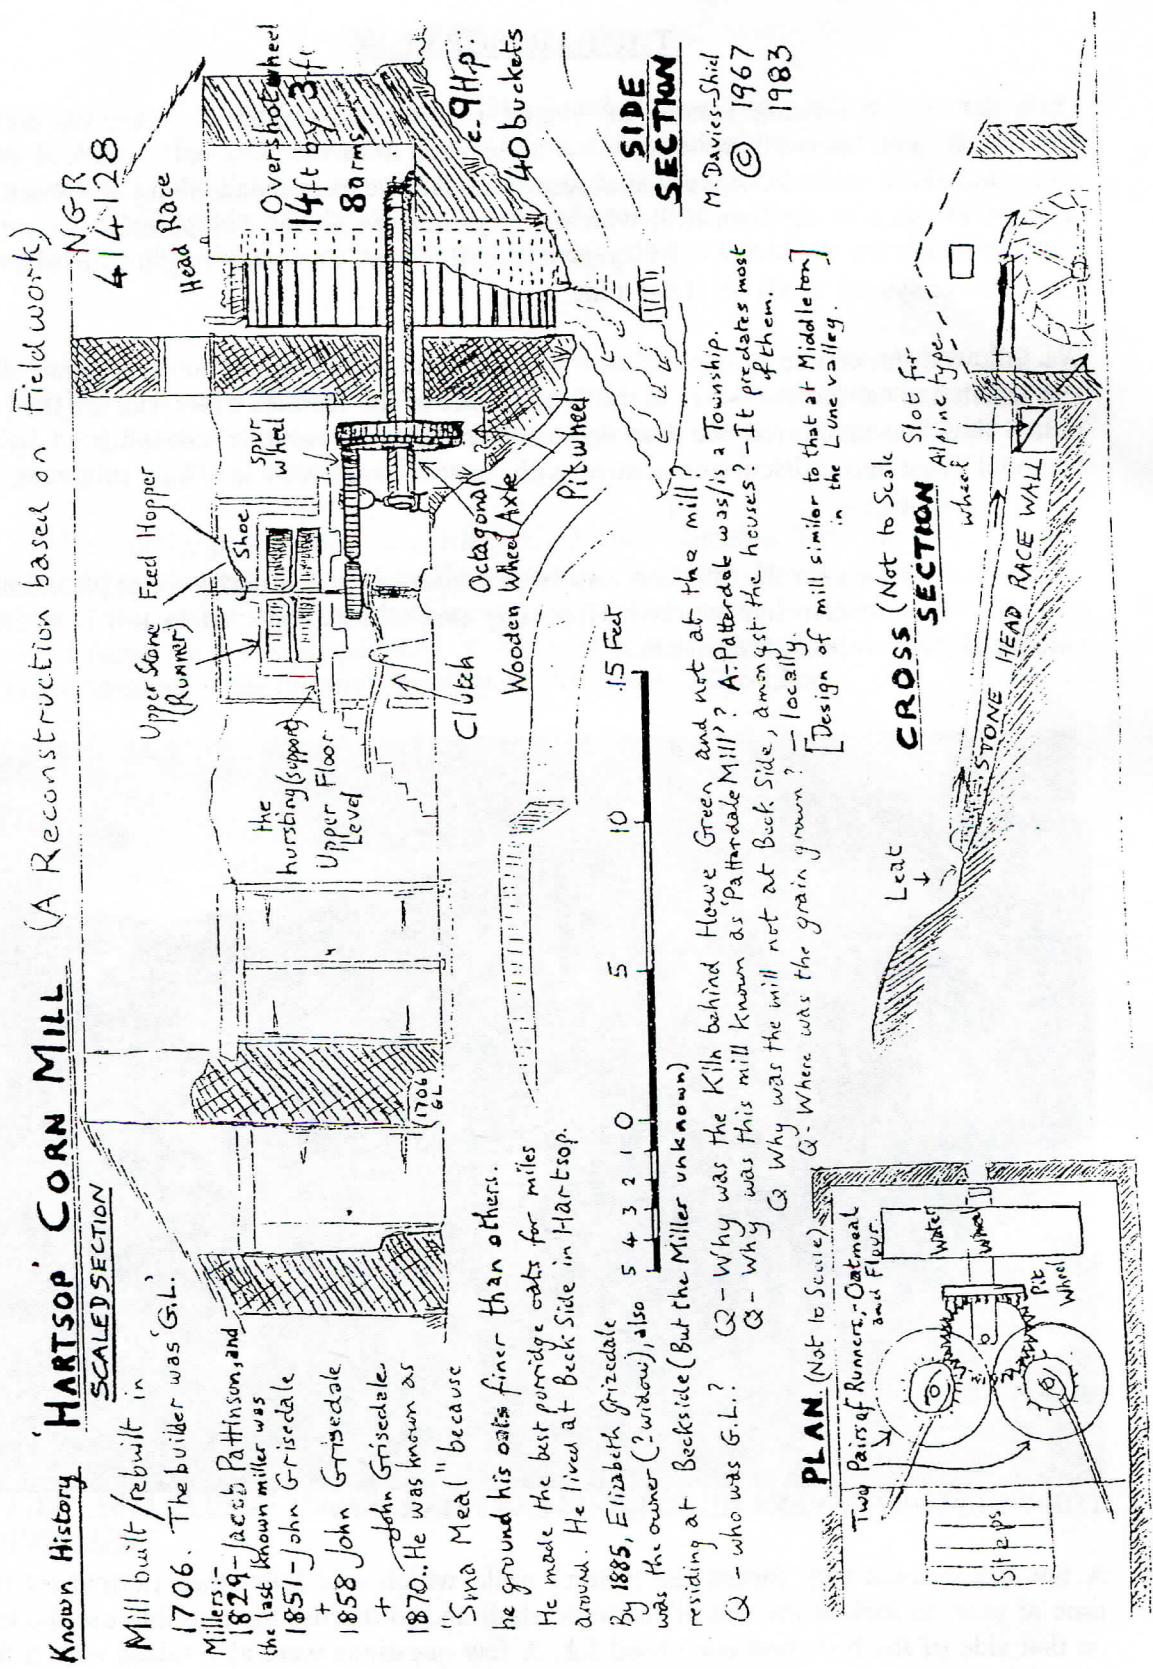 Known History
HARTSOP CORN MILL (A Reconstruction based on Fieldwork)
SCALED SECTION
NGR
414128
Mill built/rebuilt in
1706. The builder was 'G.L.'
Millers:-
1829 - Jacob Pattinson, and
the last known miller was
1851 - John Grisedale
+
1858 John Grisedale
+ John Grisedale
1870.. He was known as
"Sma Meal" because
he ground his oats finer than others.
He made the best porridge oats for miles
around. He lived at Beck Side in Hartsop.
By 1885, Elizabeth Grizedale
was the owner (? widow), also
residing at Beckside (But the Miller unknown)
Q - who was G.L.?
Q - Why was the Kiln behind Howe Green and not at the mill?
Q - Why was this mill known as 'Patterdale Mill'? A - Patterdale was/is a Township.
Q Why was the mill not at Beck Side, amongst the houses? - It predates most of them.
Q - Where was the grain grown? - locally.
[Design of mill similar to that at Middleton]
in the Lune valley.
1706
GL
Upper Stone
(Runner)
Feed Hopper
Shoe
Spur
Wheel
Head Race
Overshot wheel
14ft by 3ft
8 arms
c.9 H.p.
40 buckets
the
hursting (support)
Upper Floor
Level
Clutch
Octagonal
Wooden Wheel Axle
Pitwheel
SIDE
SECTION
M. Davies-Shiel
© 1967
1983
5 4 3 2 1 0 5 10 15 Feet
PLAN (Not to Scale)
Two Pairs of Runners,- Oatmeal
and Flour
Water
Wheel
Pit
Wheel
Steps
CROSS (Not to Scale)
SECTION
Slot for
Alpine type
wheel
Leat
STONE HEAD RACE WALL